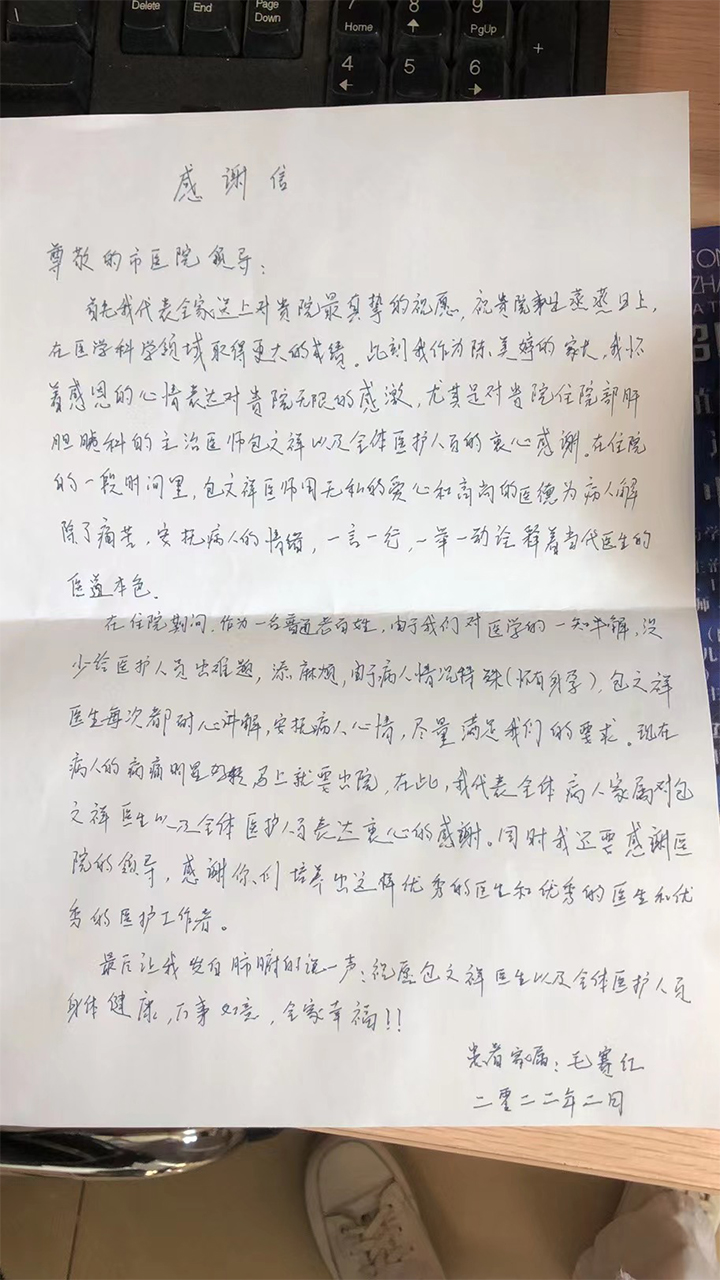 Delete
End
Page
Down
7
Home
8
9
PgUp
4
5
6
+
感谢信
尊敬的市医院领导：
首先我代表全家送上对贵院最真挚的祝愿，祝贵院事业蒸蒸日上，
在医学科学领域取得更大的成绩。此刻我作为陈美婷的家夫，我怀
着感恩的心情表达对贵院无限的感激，尤其是对贵院住院部肝
胆胰科的主治医师包文祥以及全体医护人员的衷心感谢。在住院
的一段时间里，包文祥医师用无私的爱心和高尚的医德为病人解
除了痛苦，安抚病人的情绪，一言一行，一举一动诠释着当代医生的
医道本色。
在住院期间，作为一名普通老百姓，由于我们对医学的一知半解，没
少给医护人员出难题，添麻烦，由于病人情况特殊（怀有身孕），包文祥
医生每次都耐心讲解，安抚病人心情，尽量满足我们的要求。现在
病人的病痛明显好转马上就要出院，在此，我代表全体病人家属对包
文祥医生以及全体医护人员表达衷心的感谢。同时我还要感谢医
院的领导，感谢你们培养出这样优秀的医生和优秀的医生和优
秀的医护工作者。
最后让我发自肺腑的说一声：祝愿包文祥医生以及全体医护人员
身体健康，万事如意，全家幸福！！
患者家属：毛赛红
二零二二年二月